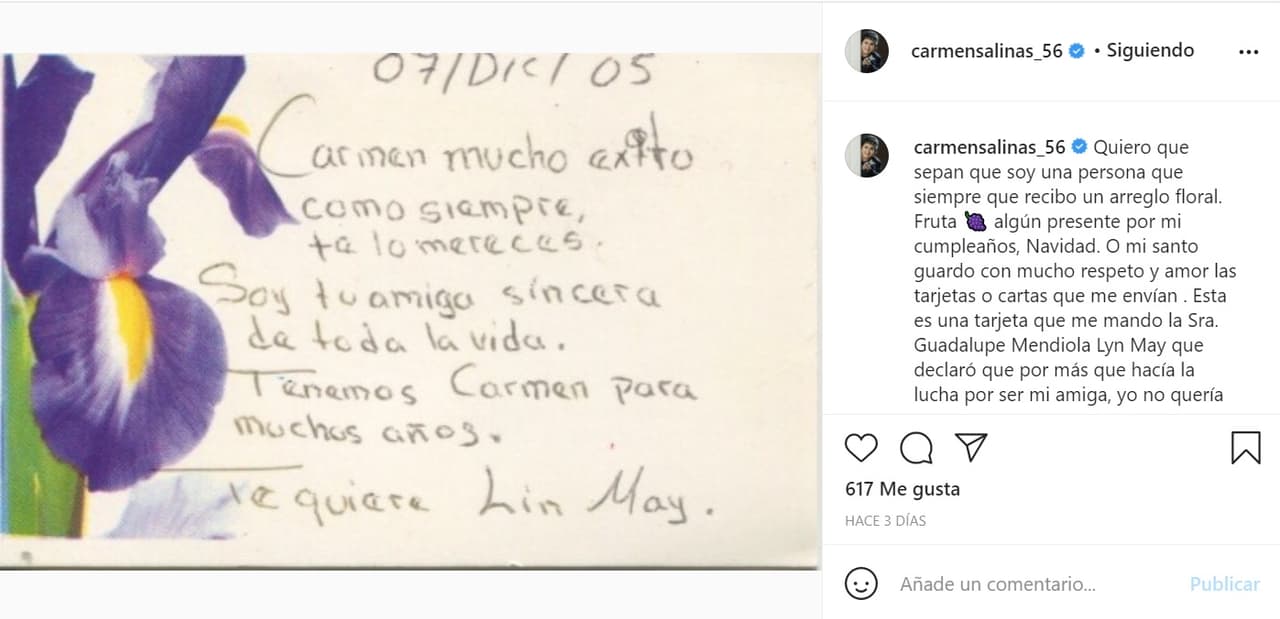 07/DIC/05
Carmen mucho exito
como siempre,
te lo mereces.
Soy tu amiga sincera
de toda la vida.
Tenemos Carmen para
muchos años.
te quiere Lin May.
carmensalinas_56 • Siguiendo
carmensalinas_56 Quiero que
sepan que soy una persona que
siempre que recibo un arreglo floral.
Fruta 🍇 algún presente por mi
cumpleaños, Navidad. O mi santo
guardo con mucho respeto y amor las
tarjetas o cartas que me envían . Esta
es una tarjeta que me mando la Sra.
Guadalupe Mendiola Lyn May que
declaró que por más que hacía la
lucha por ser mi amiga, yo no quería
617 Me gusta
HACE 3 DÍAS
Añade un comentario...
Publicar